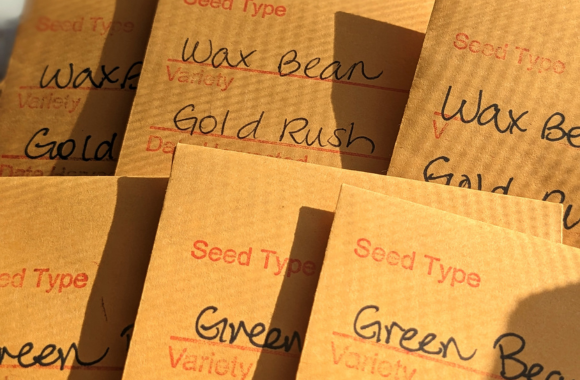 Seed Type
Wax B
Variety
Gold
Seed Type
Wax Bean
Variety
Gold Rush
Seed Type
Wax Be
V
Gold Ru
ed Type
reen B
Seed Type
Green
Variety
Seed Type
Green Bea
Variety